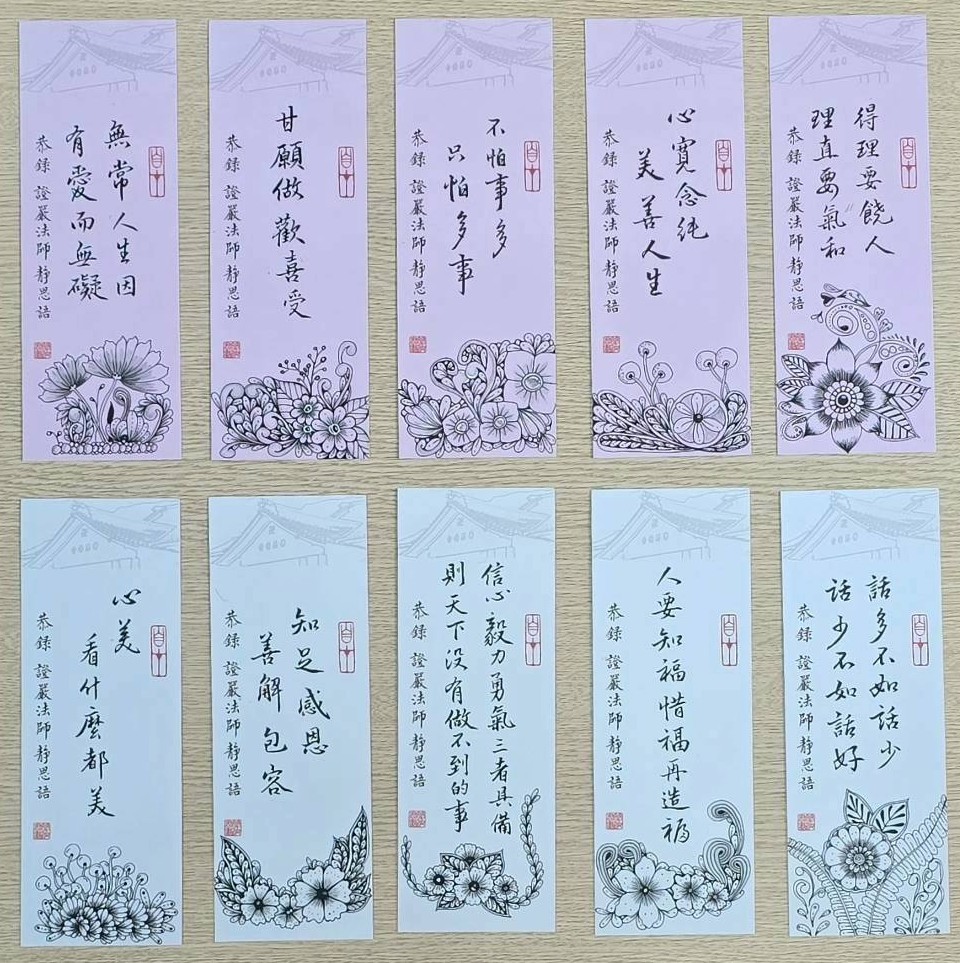 無常人生因
有愛而無礙
恭錄 證嚴法師靜思語
甘願做歡喜受
恭錄 證嚴法師靜思語
不怕事多
只怕多事
恭錄 證嚴法師靜思語
心寬念純
美善人生
恭錄 證嚴法師靜思語
得理要饒人
理直要氣和
恭錄 證嚴法師靜思語
心美
看什麼都美
恭錄 證嚴法師靜思語
知足感恩
善解包容
恭錄 證嚴法師靜思語
信心毅力勇氣三者具備
則天下沒有做不到的事
恭錄 證嚴法師靜思語
人要知福惜福再造福
恭錄 證嚴法師靜思語
話多不如話少
話少不如話好
恭錄 證嚴法師靜思語